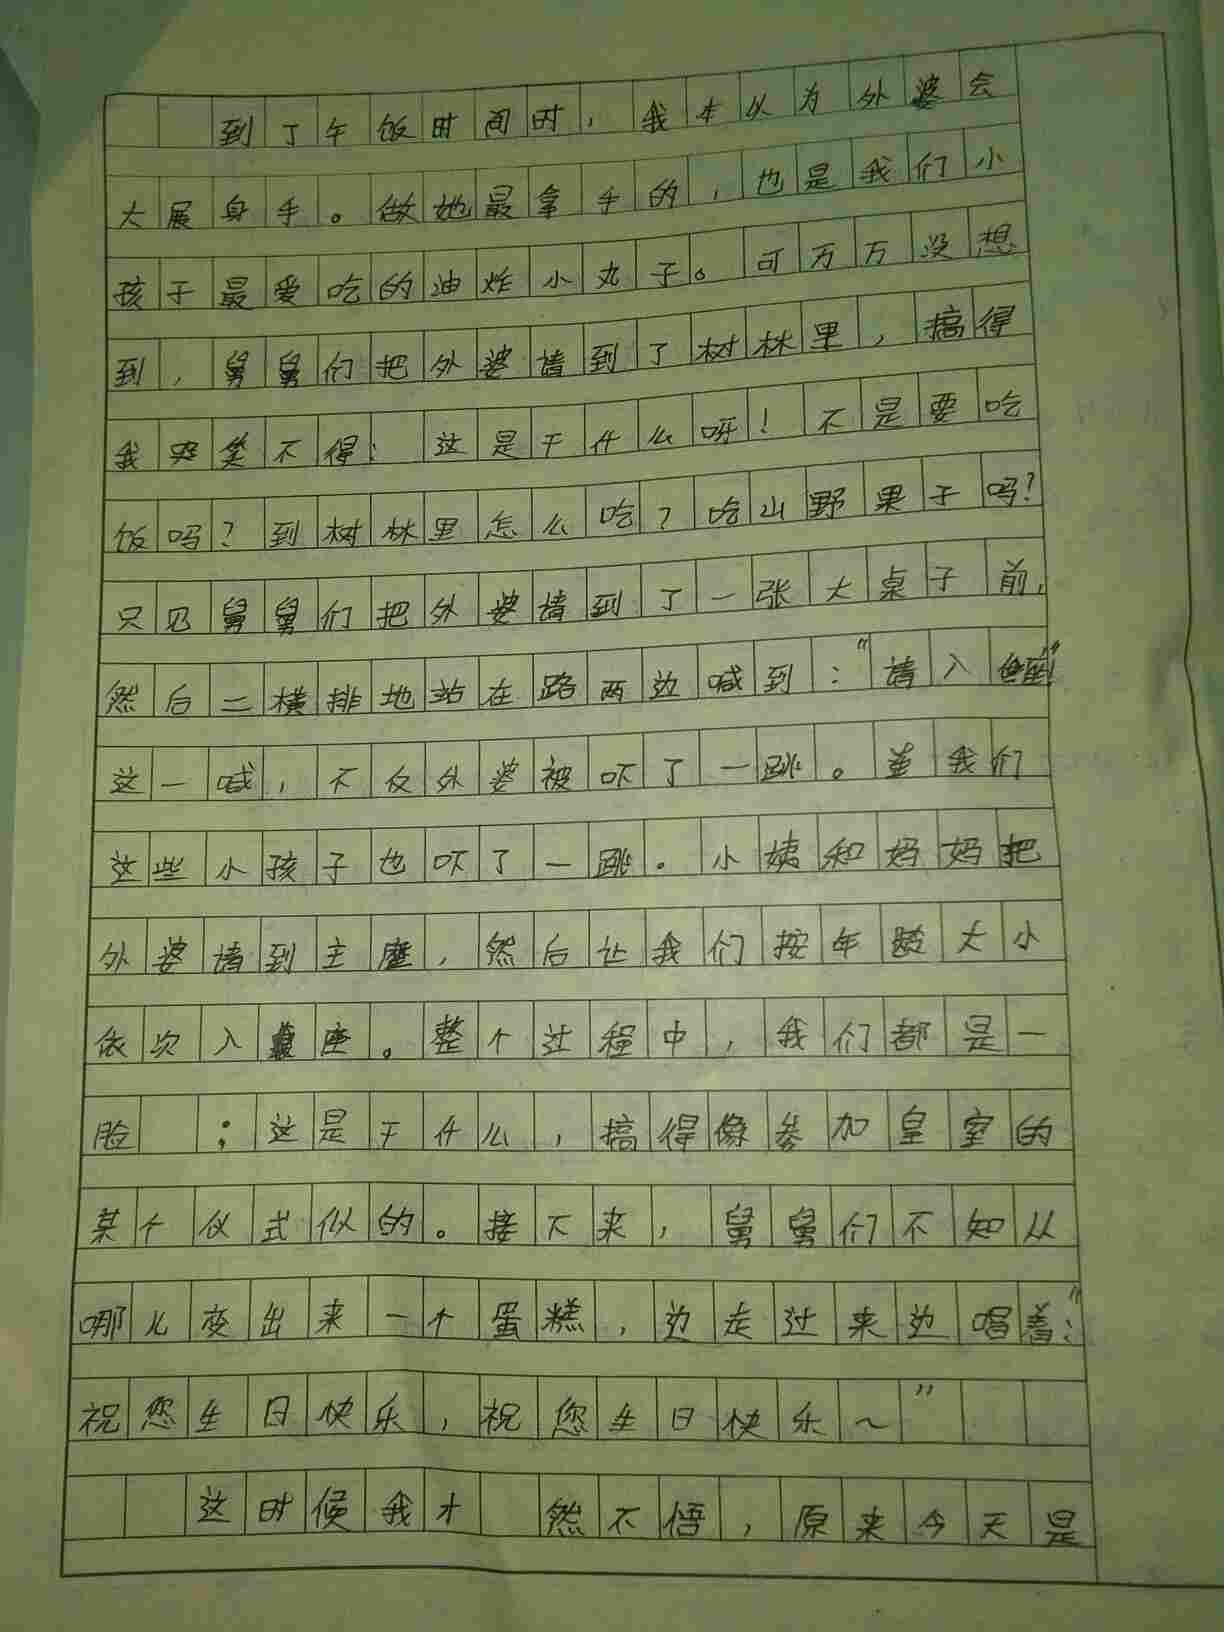 到了午饭时间时，我本以为外婆会
大展身手。做她最拿手的，也是我们小
孩子最爱吃的油炸小丸子。可万万没想
到，舅舅们把外婆请到了树林里，搞得
我哭笑不得：这是干什么呀！不是要吃
饭吗？到树林里怎么吃？吃山野果子吗？
只见舅舅们把外婆请到了一张大桌子前，
然后二横排地站在路两边喊到：“请入座！”
这一喊，不仅外婆被吓了一跳。并我们
这些小孩子也吓了一跳。小姨和妈妈把
外婆请到主座，然后让我们按年龄大小
依次入座。整个过程中，我们都是一
脸 ；这是干什么，搞得像参加皇室的
某个仪式似的。接下来，舅舅们不知从
哪儿变出来一个蛋糕，边走过来边唱着：“
祝您生日快乐，祝您生日快乐～”
这时候我才 然不悟，原来今天是